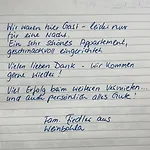 Wir waren hier Gast – leider nur
für eine Nacht.
Ein sehr schönes Appartement,
geschmackvoll eingerichtet
Vielen lieben Dank – wir kommen
gerne wieder!
Viel Erfolg beim weiteren Vermieten...
und auch persönlich alles Gute!
Fam. Riedler aus
Weinböhla